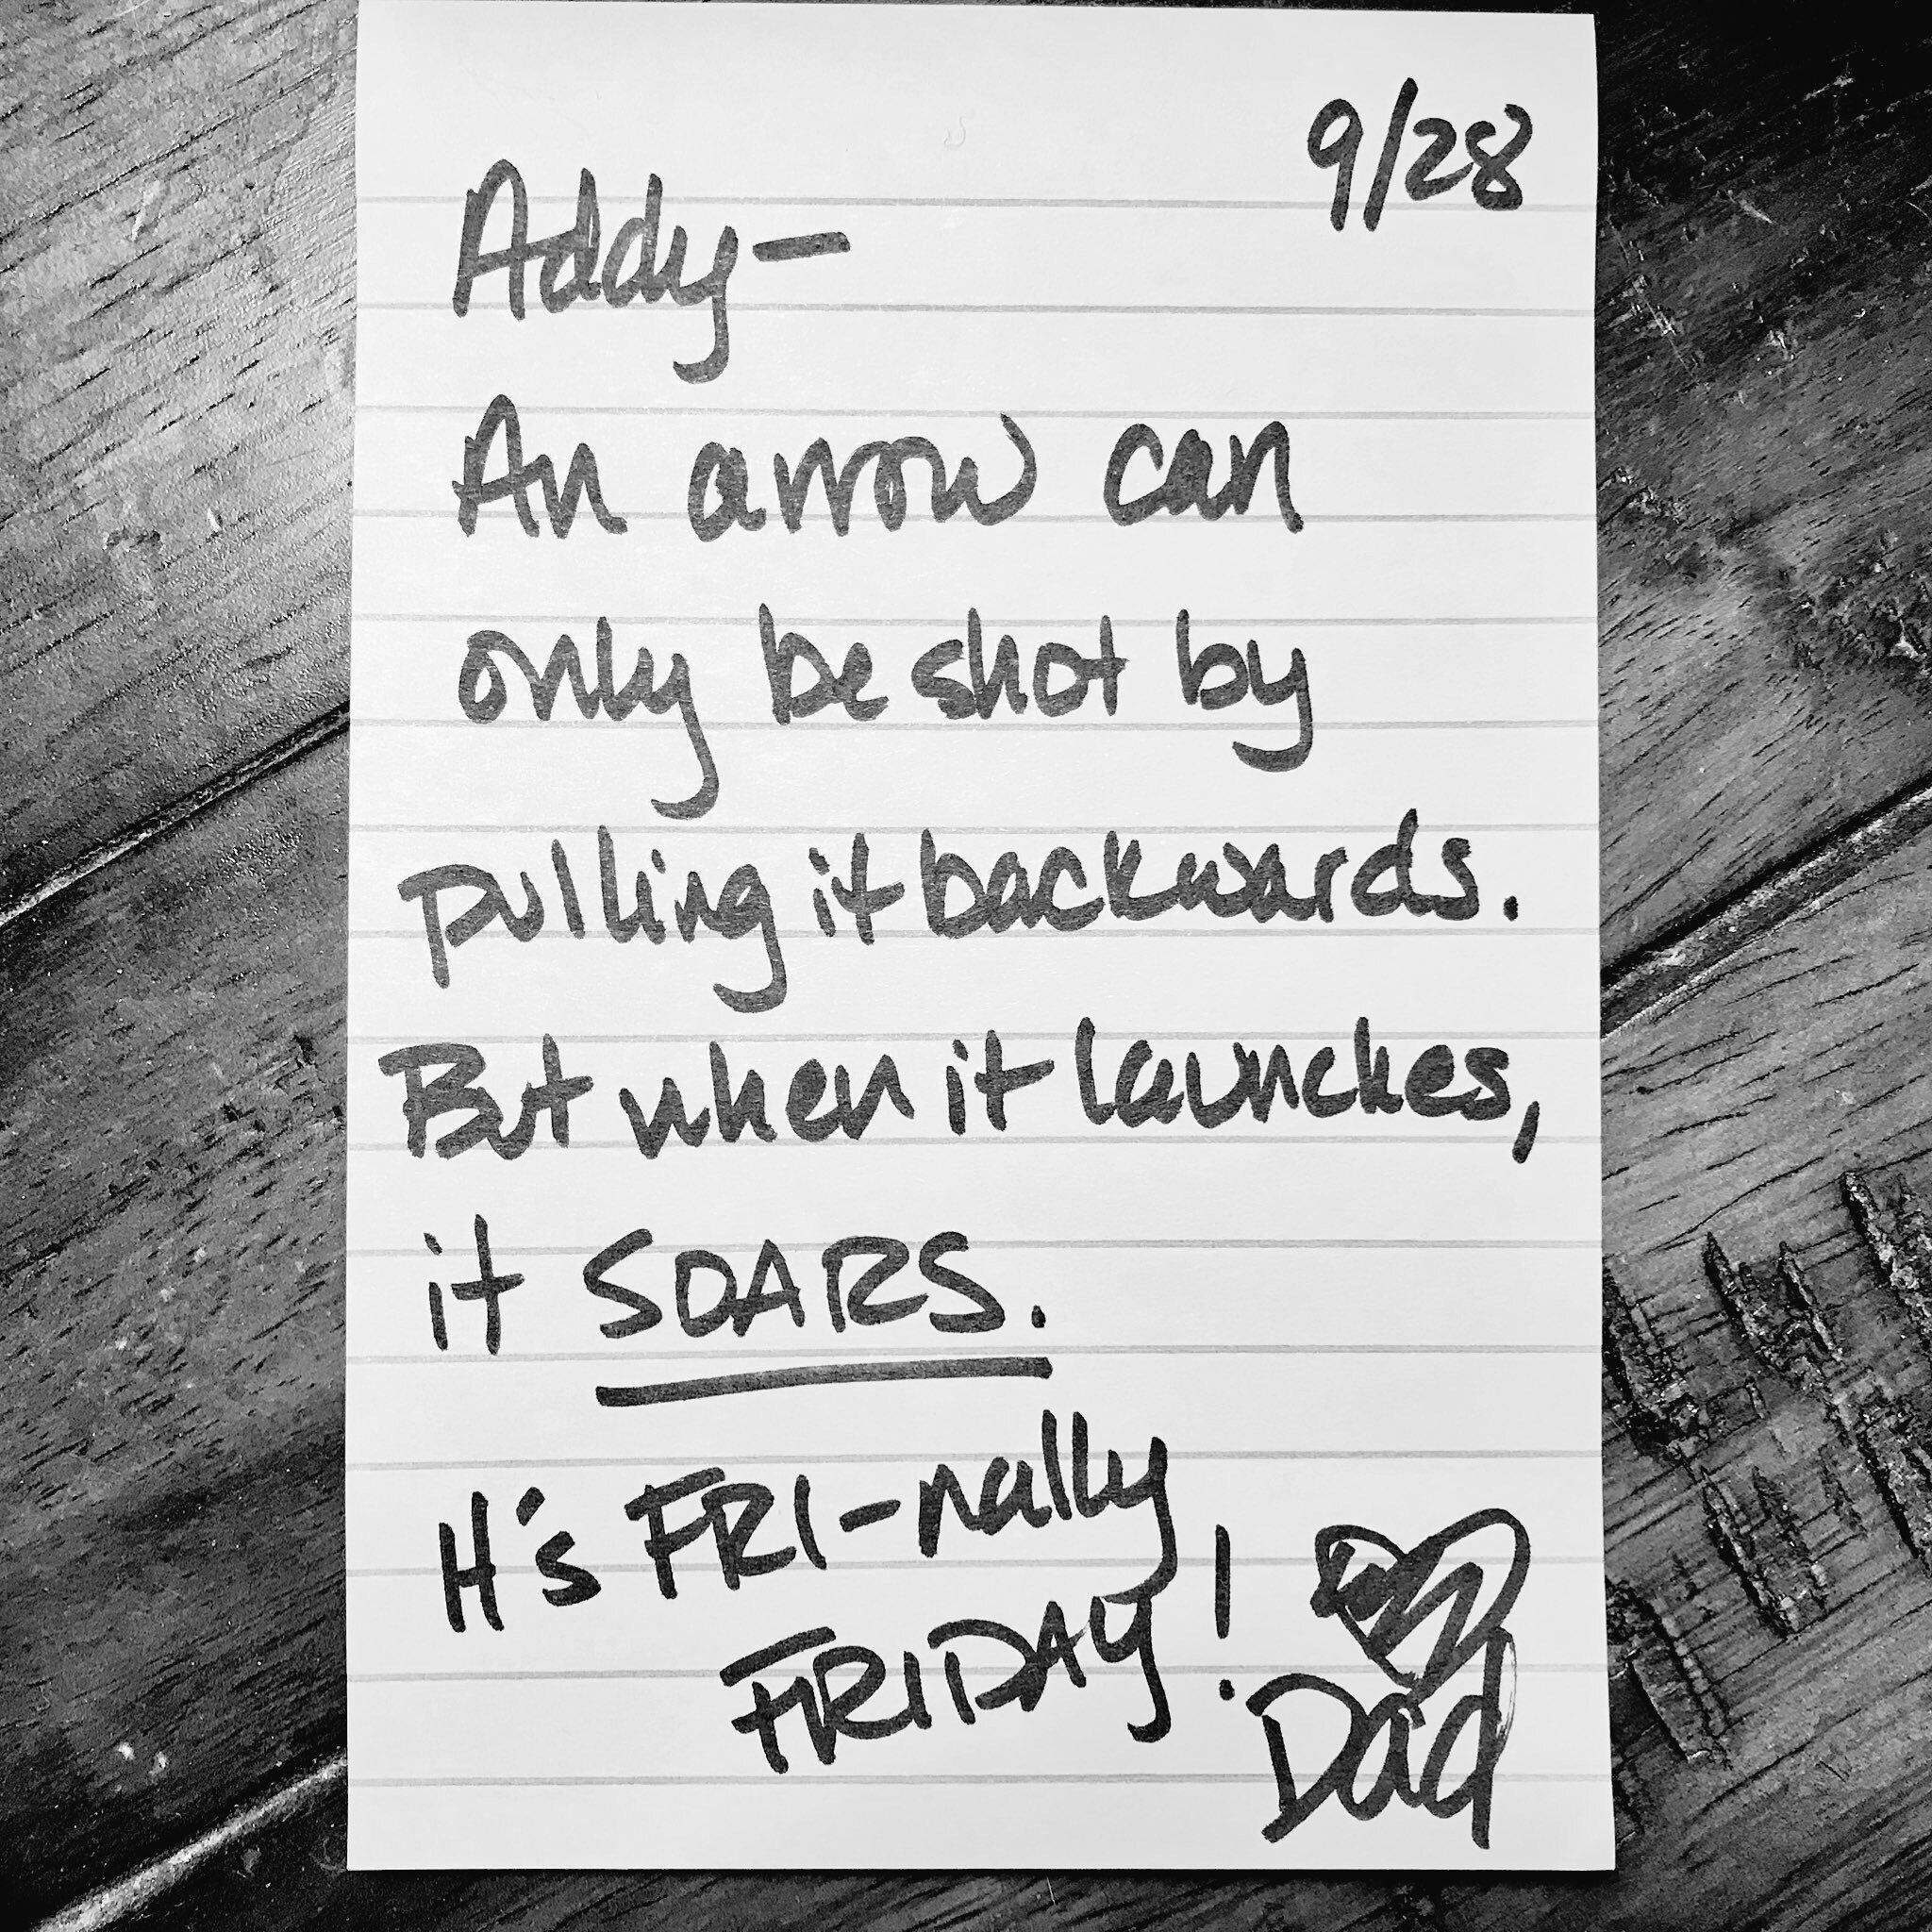 9/28
Addy-
An arrow can
only be shot by
pulling it backwards.
But when it launches,
it SOARS.
It's FRI-nally
FRIDAY!
Dad